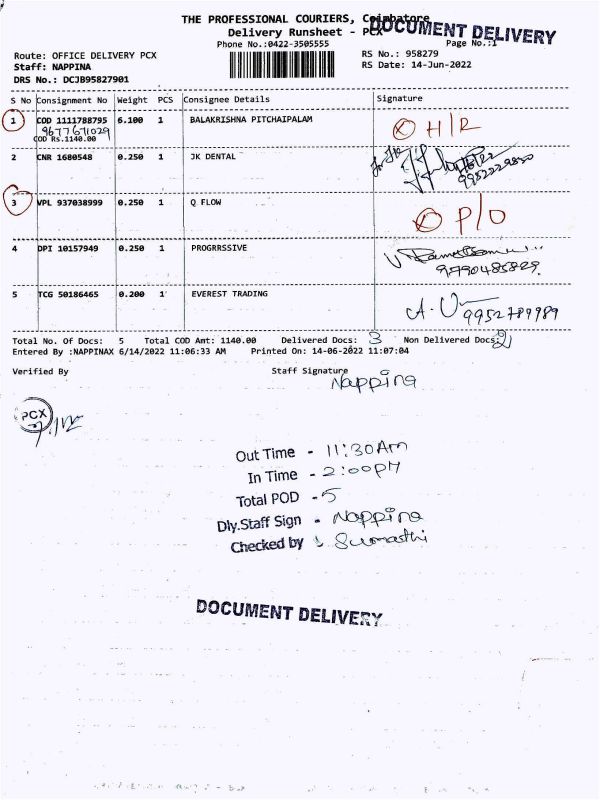 THE PROFESSIONAL COURIERS, Coimbatore
DOCUMENT DELIVERY
Delivery Runsheet - PCX
Phone No.:0422-3505555 Page No.:1
Route: OFFICE DELIVERY PCX RS No.: 958279
Staff: NAPPINA RS Date: 14-Jun-2022
DRS No.: DCJB95827901
S No Consignment No Weight PCS Consignee Details Signature
1 COD 1111788795 6.100 1 BALAKRISHNA PITCHAIPALAM H/R
9677671029
COD Rs.1140.00
2 CNR 1680548 0.250 1 JK DENTAL
9952229830
3 VPL 937038999 0.250 1 Q FLOW P/O
4 DPI 10157949 0.250 1 PROGRRSSIVE
9790485829.
5 TCG 50186465 0.200 1 EVEREST TRADING
9952789989
Total No. Of Docs: 5 Total COD Amt: 1140.00 Delivered Docs: 3 Non Delivered Docs: 2
Entered By :NAPPINAX 6/14/2022 11:06:33 AM Printed On: 14-06-2022 11:07:04
Verified By Staff Signature
Nappina
PCX
Out Time - 11:30Am
In Time - 2:00PM
Total POD - 5
Dly.Staff Sign - Nappina
Checked by Sumasthi
DOCUMENT DELIVERY